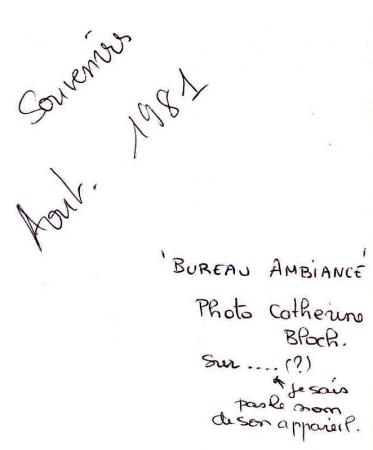 Souvenirs
Aout. 1981
'BUREAU AMBIANCE'
Photo Catherine
Bloch.
Sur .... (?)
↖ je sais
pas le nom
de son appareil.